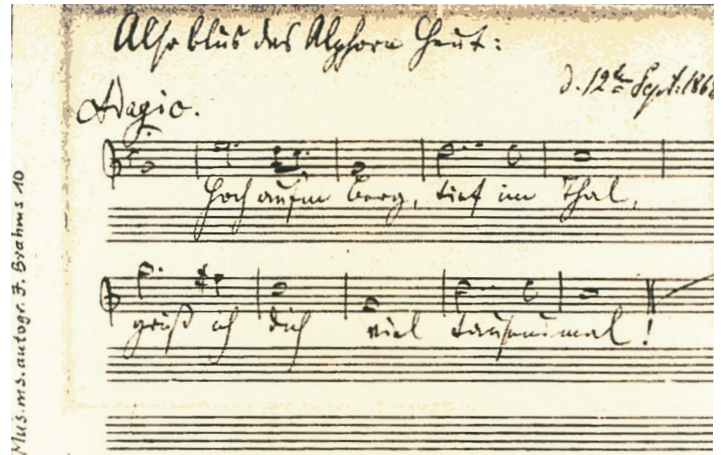 Also blus das Alphorn heut:
d. 12ten Sept. 186
Adagio.
Hoch aufm Berg, tief im Thal,
grüß ich dich viel tausendmal!
Mus.ms.autogr. J. Brahms 10